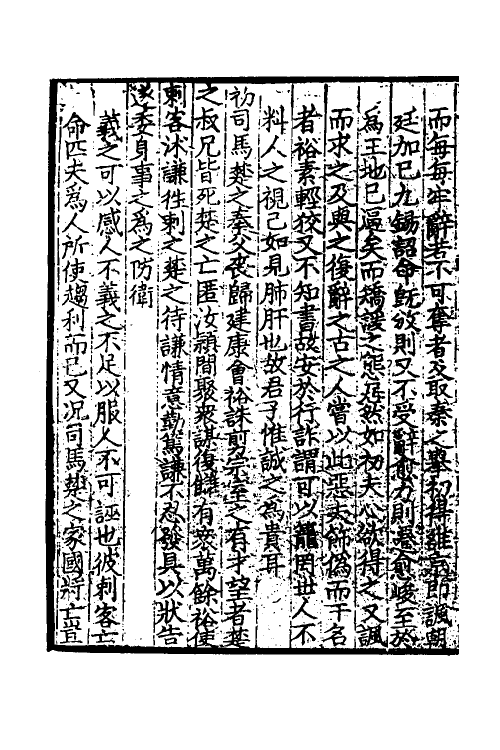 而每每牢辭若不可奪者及取秦之舉初得雖京即諷朝
廷加已九錫詔命旣放則又不受辭愈力則愚愈峻至於
爲王地已逼矣而矯謾之態居然如初夫心欲得之又諷
而求之及與之復辭之古之人嘗以此惡夫飾僞而干名
者裕素輕狡又不知書故安於行詐謂可以籠罔世人不
料人之視己如見肺肝也故君子惟誠之爲貴耳
初司馬楚之奉父喪歸建康會裕誅剪宗室之有才望者楚
之叔兄皆死楚之亡匿汝潁間聚衆謀復讎有衆萬餘裕使
刺客沐謙往刺之楚之待謙情意勤篤謙不忍發具以狀告
遂委身事之爲之防衛
義之可以感人不義之不足以服人不可誣也彼刺客亡
命匹夫爲人所使趨利而已又况司馬楚之家國將亡豈